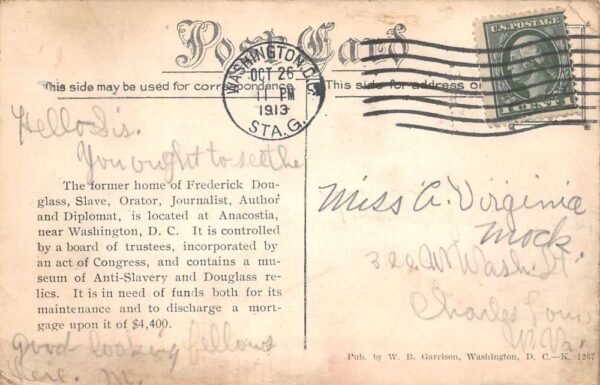 Post Card
This side may be used for correspondence
This side for address on
WASHINGTON, D.C.
OCT 26
11 PM
1913
STA. G.
U.S. POSTAGE
1 CENT 1
Hello Sis.
You ought to see the
The former home of Frederick Dou-
glass, Slave, Orator, Journalist, Author
and Diplomat, is located at Anacostia,
near Washington, D. C. It is controlled
by a board of trustees, incorporated by
an act of Congress, and contains a mu-
seum of Anti-Slavery and Douglass re-
lics. It is in need of funds both for its
maintenance and to discharge a mort-
gage upon it of $4,400.
good looking fellows
here. M.
Miss A. Virginia
Mock.
Wash. St.
Charles Town
W. Va.
Pub. by W. B. Garrison, Washington, D. C.—K. 1267